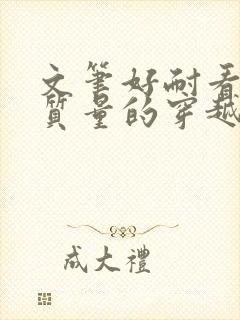 文筆好耐看
質量的穿越
成大禮